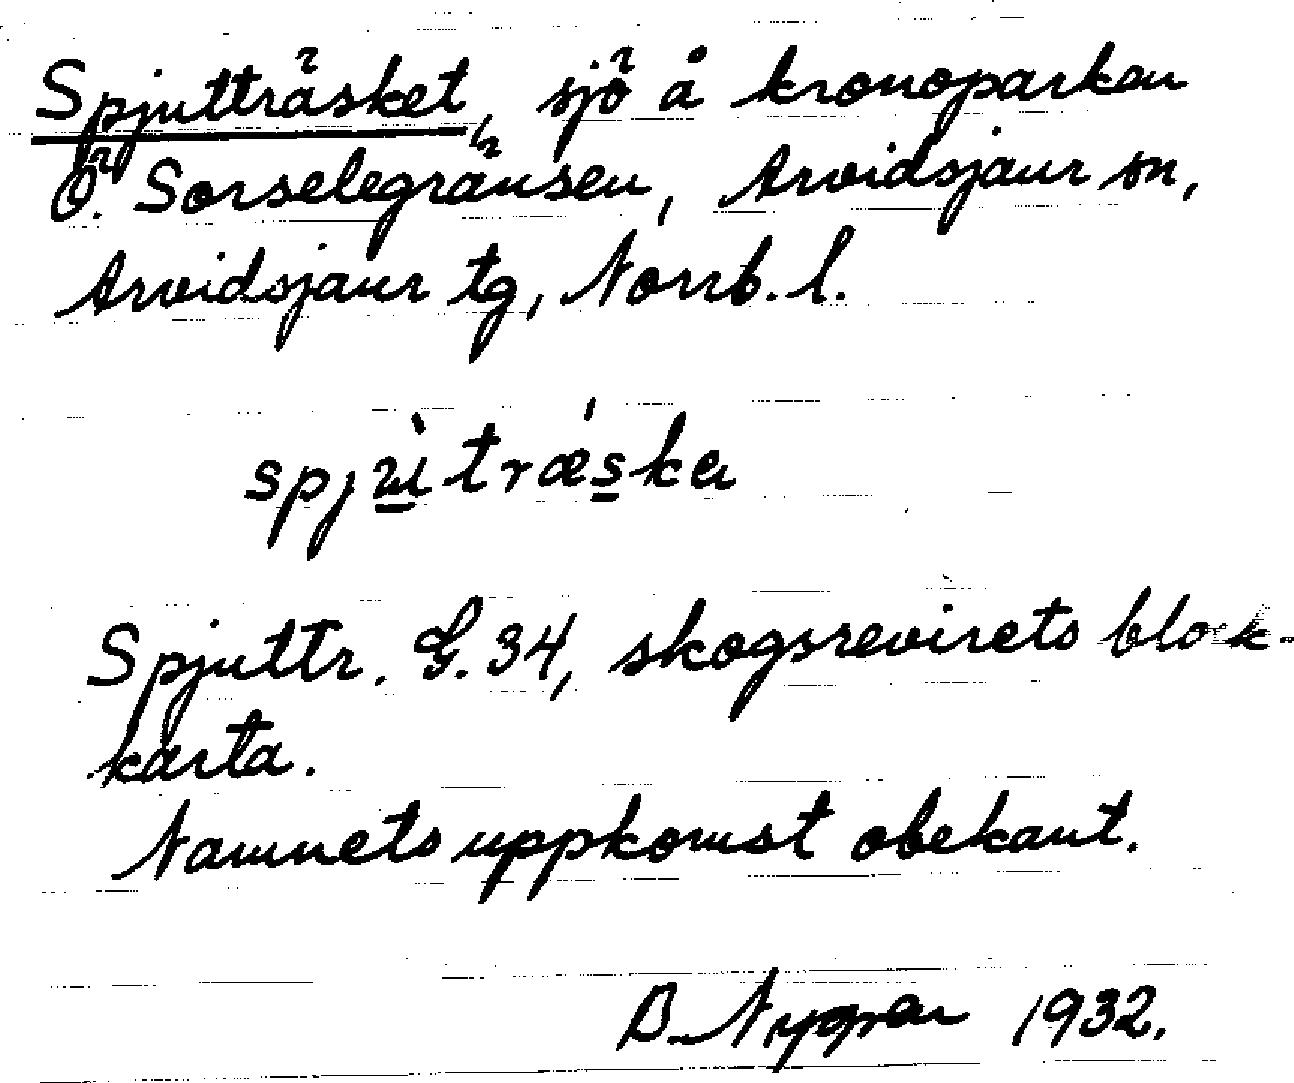 Spjutträsket, sjö å kronoparken
Ö. Sorselegränsen, Arvidsjaur sn,
Arvidsjaur tg, Norrb. l.
spjùtrǽska
Spjuttr. G. 34, skogsrevirets block-
karta.
Namnets uppkomst obekant.
B. Nygren 1932.